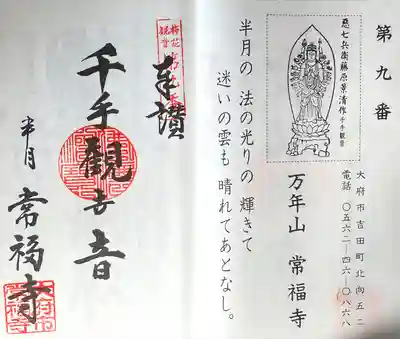 第九番
悪七兵衛藤原景清作千手観音
大府市吉田町北向五二
電話 〇五六二―四六―〇八六八
万年山 常福寺
半月の 法の光りの 輝きて
迷いの雲も 晴れてあとなし。
奉讃
千手観世音
半月 常福寺
大府市
常福寺